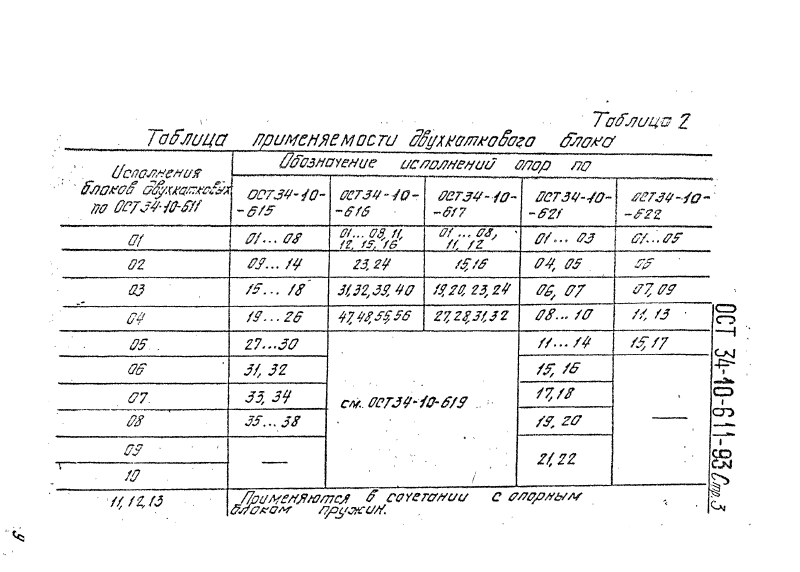 Таблица 2
Таблица применяемости двухкаткового блока
Исполнения блоков двухкатковых по ОСТ 34-10-611
Обозначение исполнений опор по
ОСТ34-10-615
ОСТ34-10-616
ОСТ34-10-617
ОСТ34-10-621
ОСТ34-10-622
01 01... 08 01... 08, 11, 12, 15, 16 01... 08, 11, 12 01... 03 01...05
02 09... 14 23,24 15,16 04, 05
03 15... 18 31,32,39,40 19,20,23,24 06, 07 07,09
04 19... 26 47,48,55,56 27,28,31,32 08... 10 11, 13
05 27...30 см. ОСТ34-10-619 11... 14 15,17
06 31, 32 15, 16 —
07 33, 34 17,18
08 35... 38 19, 20
09 — 21,22
10
11, 12, 13 Применяются в сочетании с опорным
блоком пружин.
ОСТ 34-10-611-93 Стр.3
9